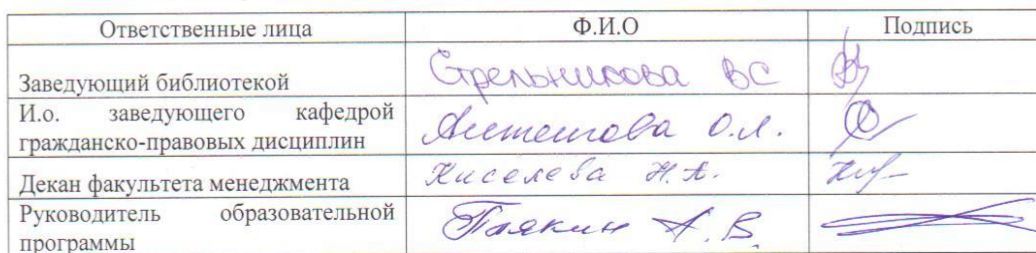 Ответственные лица Ф.И.О Подпись
Заведующий библиотекой Стрельникова ВС
И.о. заведующего кафедрой
гражданско-правовых дисциплин О.Л.
Декан факультета менеджмента Киселева Н.А.
Руководитель образовательной
программы А.В.